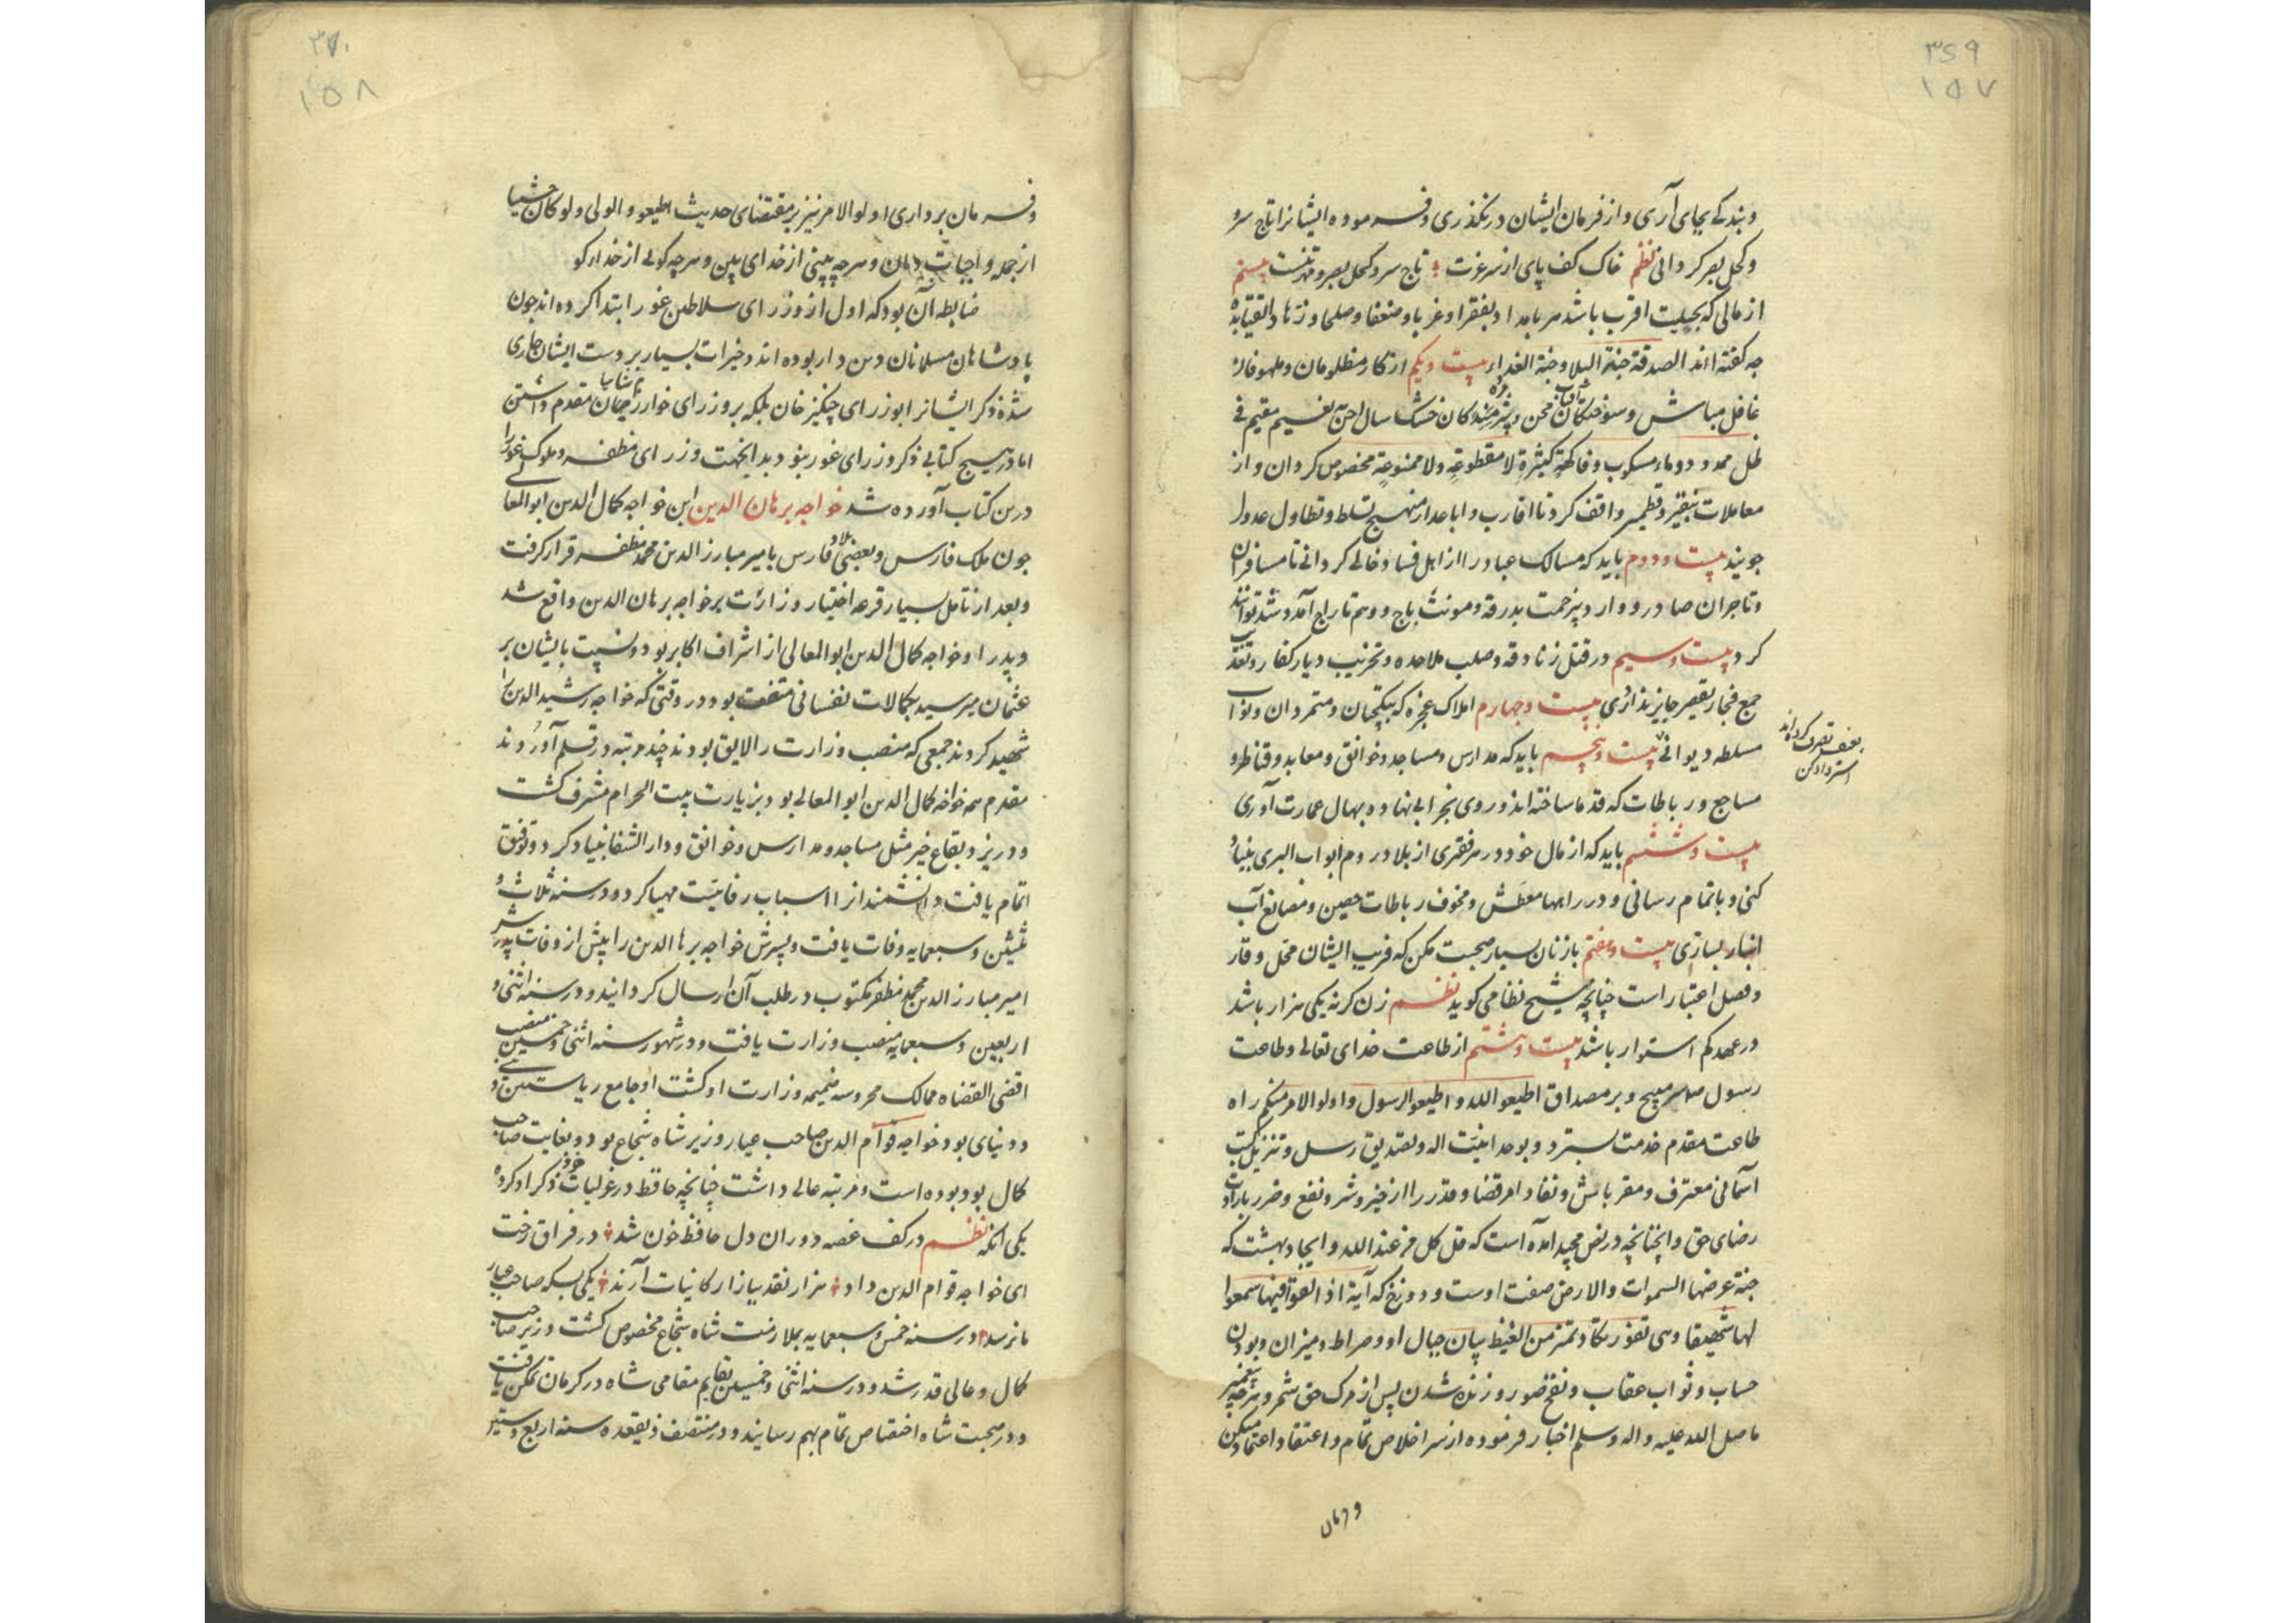 ۳۶۹
۱۵۷
وبندگی بجای آری و از فرمان ایشان درنگذری و فرموده ایشانرا تاج سر و
و کحل بصر گردانی نظم خاک کف پای از سر عزت تاج سر و کحل بصر و بیستم
از مالی که بحلیت اقرب باشد هر بامداد بفقرا و غربا و ضعفا و صلحا و زهاد و اتقیا بده
چه گفته‌اند الصدقة جنة البلاء و جنة الغد از بیست و یکم از کار مظلومان و ملهوفان
غافل مباش و سوختگان آفتاب محن و پژمردگان خشک سال احن نعیم مقیم فی
ظل ممدود و ماء مسکوب و فاکهة کثیرة لا مقطوعة ولا ممنوعة مخصوص گردان و از
معاملات بنقیر و قطمیر واقف گرد تا اقارب و اباعد از منهج تسلط و تطاول عدول
جویند بیست و دوم باید که مسالک عباد را از اهل فساد خالی گردانی تا مسافران
و تاجران صادر و وارد بیزحمت بدرقه و مونث باج و وهم تاراج آمد و شد توانند
کرد بیست و سیم در قتل زنادقه و صلب ملاحده و تخریب دیار کفار و تعذیب
جمع فجار تقصیر جایز نداری بیست و چهارم املاک عجزه که بیکچیان و متمردان و نواب
مسلطه دیوانی بیست و پنجم باید که مدارس و مساجد و خوانق و معابد و قناطر و
بغصب تصرف کرده‌اند
استرداد کن
مساجع و رباطات که قدما ساخته‌اند و روی بخرابی نهاده بحال عمارت آوری
بیست و ششم باید که از مال خود در هر فقری از بلاد روم ابواب البری بنیاد
کنی و باتمام رسانی و در راهها معطش و مخوف رباطات حصین و مصانع آب
انبار بسازی بیست و هفتم با زنان بسیار صحبت مکن که فریب ایشان مخل وقار
و فصل اعتبار است چنانچه شیخ نظامی گوید نظم زن گر نه یکی هزار باشد
در عهد کم استوار باشد بیست و هشتم از طاعت خدای تعالی و طاعت
رسول سر مپیچ و بر مصداق اطیعو الله و اطیعو الرسول و اولو الامر منکم راه
طاعت مقدم خدمت بسترد و بوحدانیت اله و تصدیق رسل و تنزیل کتب
آسمانی معترف و مقر باش و نفاد امر قضا و قدر را از خیر و شر و نفع و ضرر بارادت
رضای حق دان چنانچه در نص مجید آمده است که قل کل من عند الله و ایجاد بهشت که
جنة عرضها السموات والارض صفت اوست و دوزخ که آیة اذا القوا فیها سمعوا
لها شهیقا وهی تفور تکاد تمیز من الغیظ بیان جبال او و صراط و میزان و بودن
حساب و ثواب عقاب و نفخ صور و زنده شدن پس از مرگ حق شمر و هر چه پیغمبر
ما صلی الله علیه و اله وسلم اخبار فرموده از سر اخلاص تمام و اعتقاد اعتماد میکن
و فرمان
۳۷۰
۱۵۸
و فرمان برداری اولو الامر نیز بر مقتضای حدیث اطیعو و الوالی ولو کان حبشیا
از جمله واجبات دان و هر چه بینی از خدای بین و هر چه گوئی از خدا گو
ضابطه آن بود که اول از وزرای سلاطین غور ابتدا کرده‌اند چون
پادشاهان مسلمانان دین دار بوده‌اند و خیرات بسیار بر دست ایشان جاری
شده ذکر ایشانرا بوزرای چنگیزخان بلکه بر وزرای خوارزمشاهیان مقدم داشتن
اما در هیچ کتابی ذکر وزرای غور بنود بدانجهت وزرای مظفر و ملوک غور را
درین کتاب آورده شد خواجه برهان الدین ابن خواجه کمال الدین ابو المعالی
چون ملک فارس و بعضی بلاد فارس بامیر مبارز الدین محمد مظفر قرار گرفت
و بعد از تامل بسیار قرعه اختیار وزارت بر خواجه برهان الدین واقع شد
و پدر او خواجه کمال الدین ابو المعالی از اشراف اکابر بود و نسبت بایشان بر
عثمان میرسید بکمالات نفسانی متصف بود در وقتی که خواجه رشید الدین را
شهید کردند جمعی که منصب وزارت را لایق بودند چند مرتبه در قلم آوردند
مقدم همه خواجه کمال الدین ابو المعالی بود بزیارت بیت الحرام مشرف گشت
و در یزد بقاع خیر مثل مساجد و مدارس و خوانق و دار الشفا بنیاد کرد و توفیق
اتمام یافت دانشمندانرا اسباب رفاهیت مهیا کرد و در سنه ثلاث و
ثلثین و سبعمایه وفات یافت و پسرش خواجه برهان الدین را پیش از وفات پدرش
امیر مبارز الدین محمد مظفر مکتوب در طلب آن ارسال گردانیند و در سنه اثنی و
اربعین و سبعمایه منصب وزارت یافت و در شهور سنه اثنی و خمسین منصب
اقضی القضاه ممالک محروسه ضمیمه وزارت او گشت او جامع ریاستین دینی و
دنیای بود خواجه قوام الدین صاحب عیار وزیر شاه شجاع بود و بغایت صاحب
کمال بود بوده است و مرتبه عالی داشت چنانچه حافظ در غزلیات خود ذکر او کرده
یکی آنکه نظم در کف غصه دوران دل حافظ خون شد در فراق رخت
ای خواجه قوام الدین داد هزار نقد ببازار کانیات آرند یکی بسکه صاحب عیار
ما نرسد و در سنه خمس و سبعمایه بملازمت شاه شجاع مخصوص گشت وزیر صاحب
کمال و عالی قدر شد و در سنه اثنی و خمسین بقایم مقامی شاه در کرمان تمکن یافت
و در صحبت شاه اختصاص تمام بهم رسانیند و در منتصف ذیقعده سنه اربع و ستین